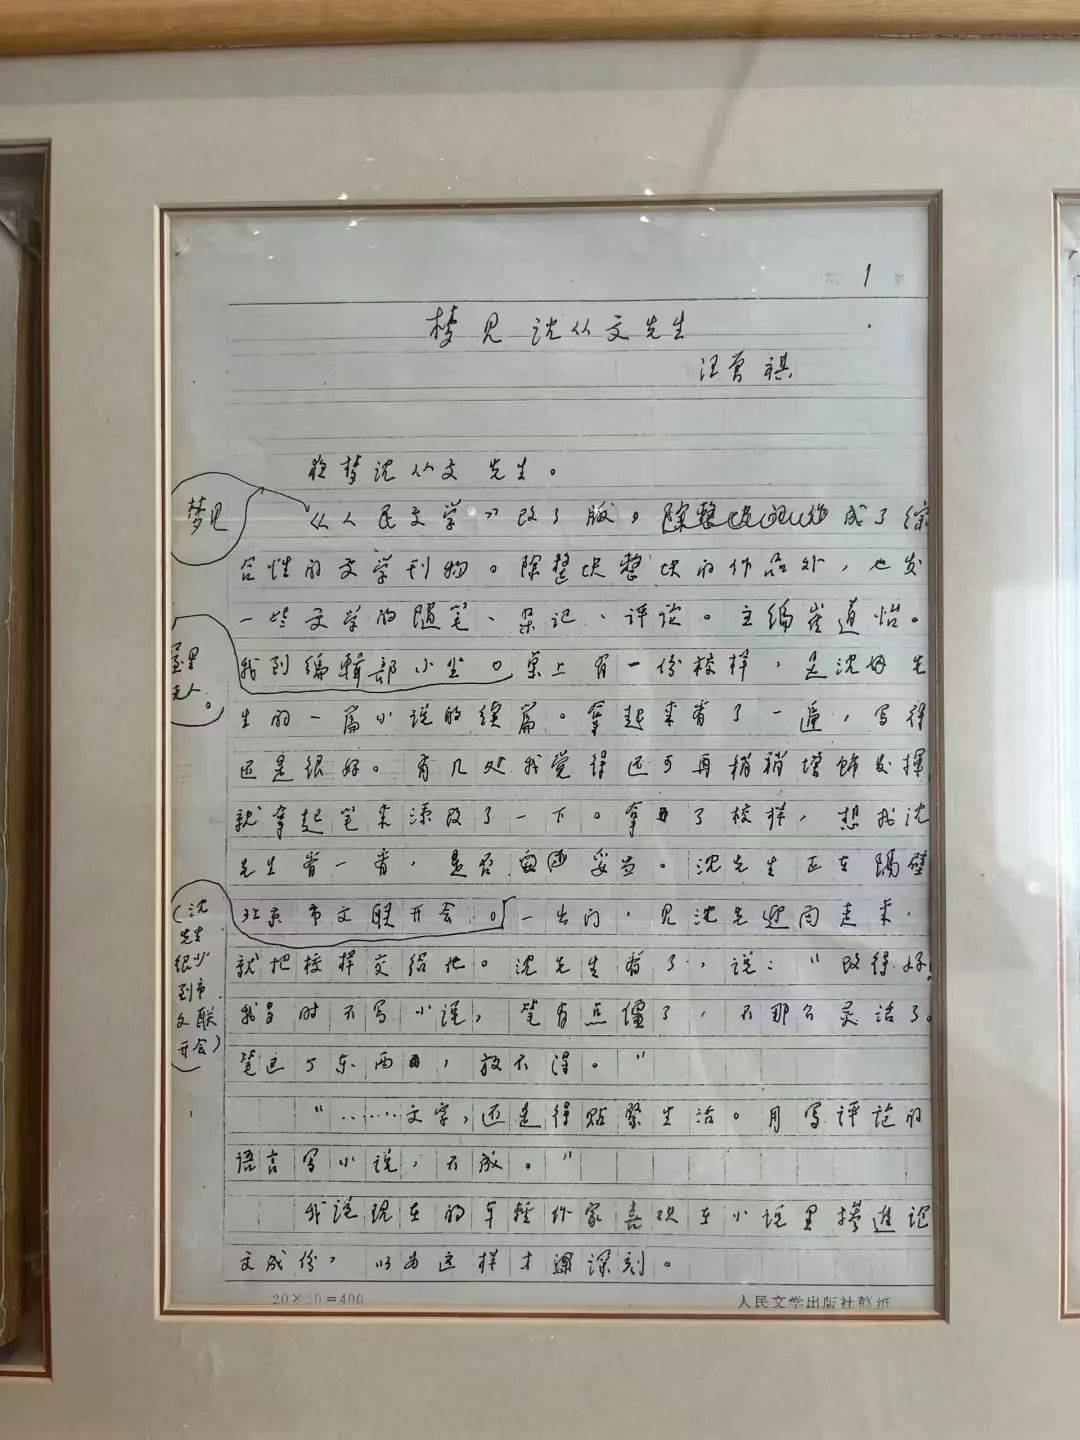 第 1 页
梦见沈从文先生
汪曾祺
夜梦沈从文先生。
梦见
《人民文学》改了版,成了综
合性的文学刊物。除整块整块的作品外,也发
一些文学的随笔、杂记、评论。主编崔道怡。
屋里
无人。
我到编辑部小坐。桌上有一份校样,是沈先
生的一篇小说的续篇。拿起来看了一遍,写得
还是很好。有几处我觉得还可再稍稍增饰发挥
就拿起笔来添改了一下。拿了校样,想找沈
先生看一看,是否妥当。沈先生正在隔壁
(沈
先生
很少
到市
文联
开会)
北京市文联开会。一出门,见沈先迎面走来,
就把校样交给他。沈先生看了,说:“改得好!
我多时不写小说,笔有点僵了,不那么灵活了。
笔这个东西,放不得。”
“……文字,还是得贴紧生活。用写评论的
语言写小说,不成。”
我说现在的年轻作家喜欢在小说里掺进论
文成份,以为这样才深刻。
20×20=400
人民文学出版社稿纸